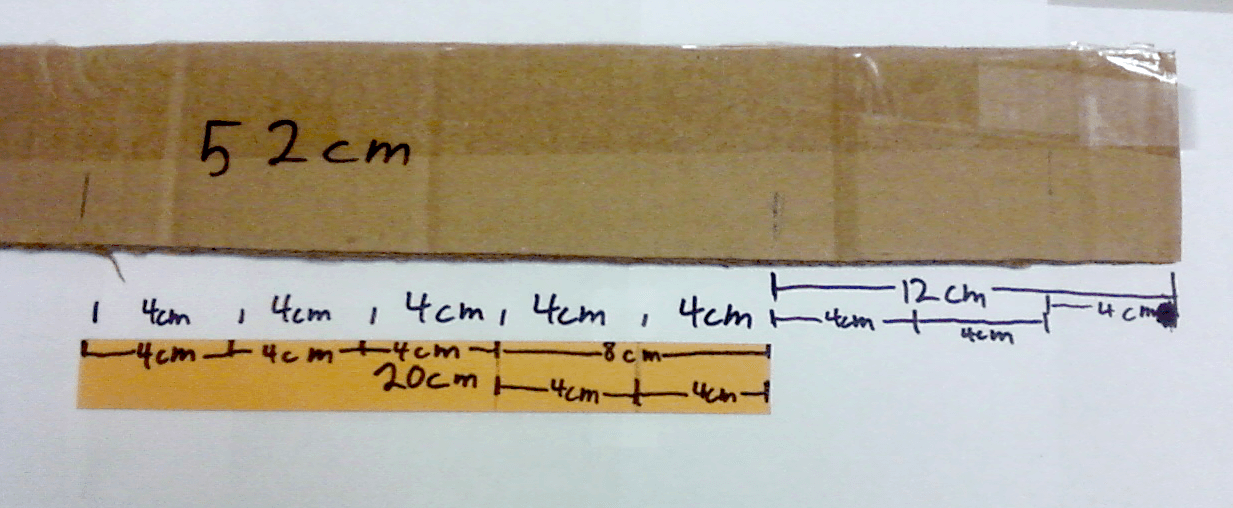 52cm
12cm
4cm 4cm 4cm 4cm 4cm 4cm 4cm 4cm
4cm 4cm 4cm 8cm
20cm 4cm 4cm